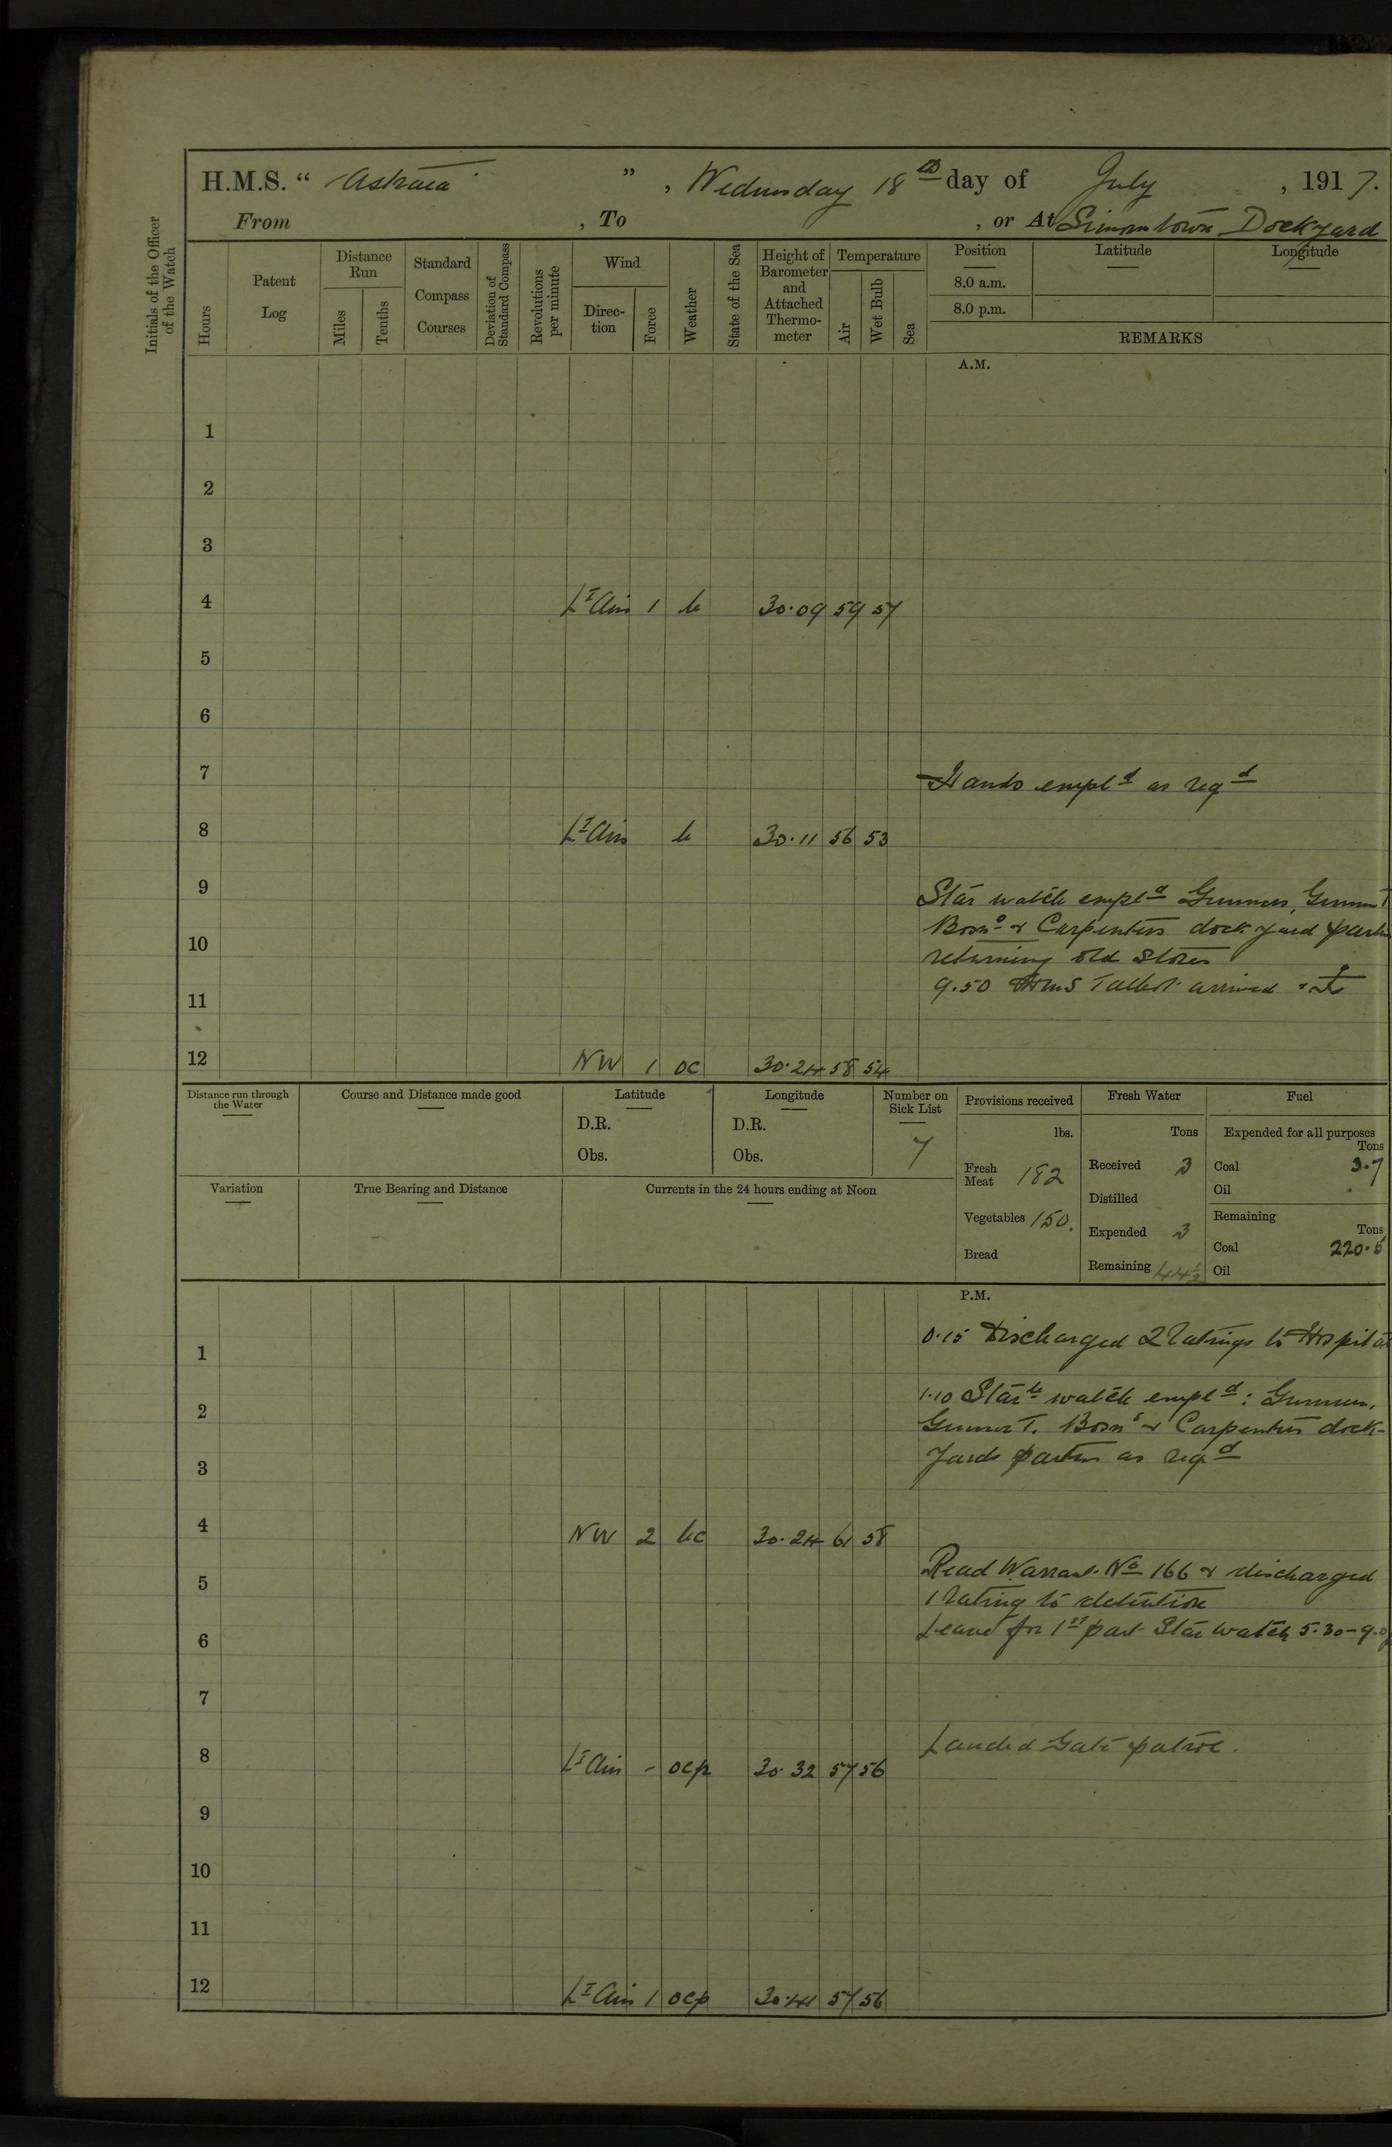 H.M.S. “ Astraea ” , Wednesday 18th day of July , 1917.
From , To , or At Simonstown Dockyard
Initials of the Officer of the Watch
Hours
Patent Log
Distance Run
Miles
Tenths
Standard Compass Courses
Deviation of Standard Compass
Revolutions per minute
Wind
Direction
Force
Weather
State of the Sea
Height of Barometer and Attached Thermometer
Temperature
Air
Wet Bulb
Sea
Position
8.0 a.m.
8.0 p.m.
Latitude
Longitude
REMARKS
A.M.
1
2
3
4 Lt Airs 1 b 30.09 59 57
5
6
7 Hands empld as reqd
8 Lt Airs b 30.11 56 53
9 Star watch empld Gunners, Gunner T
Bosns & Carpenters dockyard parties
10 returning old stores
9.50 HMS Talbot arrived &
11
12 NW 1 oc 30.24 58 54
Distance run through the Water
Course and Distance made good
Latitude
D.R.
Obs.
Longitude
D.R.
Obs.
Number on Sick List
7
Provisions received
lbs.
Fresh Meat 182
Vegetables 150.
Bread
Fresh Water
Tons
Received 3
Distilled
Expended 3
Remaining 44½
Fuel
Expended for all purposes
Tons
Coal 3.7
Oil
Remaining
Tons
Coal 220.5
Oil
Variation
True Bearing and Distance
Currents in the 24 hours ending at Noon
P.M.
0.15 Discharged 2 ratings to Hospital
1
1.10 Starb watch empld: Gunners,
2 Gunner T. Bosns & Carpenters dock-
3 yards parties as reqd
4 NW 2 bc 30.24 61 58
Read Warrant No 166 & discharged
5 1 rating to detention
6 Leave for 1st part Star watch 5.30-9.0
7
Landed Gate patrol.
8 Lt Airs - ocp 30.32 57 56
9
10
11
12 Lt Airs 1 ocp 30.41 57 56